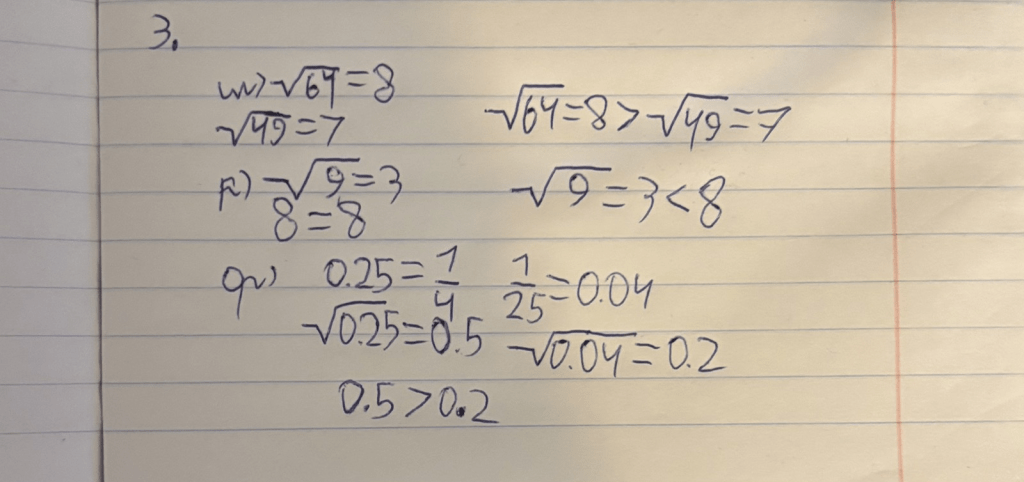 3.
w) √64 = 8
√49 = 7
√64 = 8 > √49 = 7
p) √9 = 3
8 = 8
√9 = 3 < 8
qv) 0.25 = 1/4
1/25 = 0.04
√0.25 = 0.5
√0.04 = 0.2
0.5 > 0.2